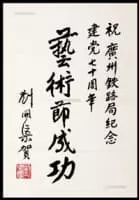 祝廣州铁路局纪念
建党七十周年
藝術節成功
刘開渠賀